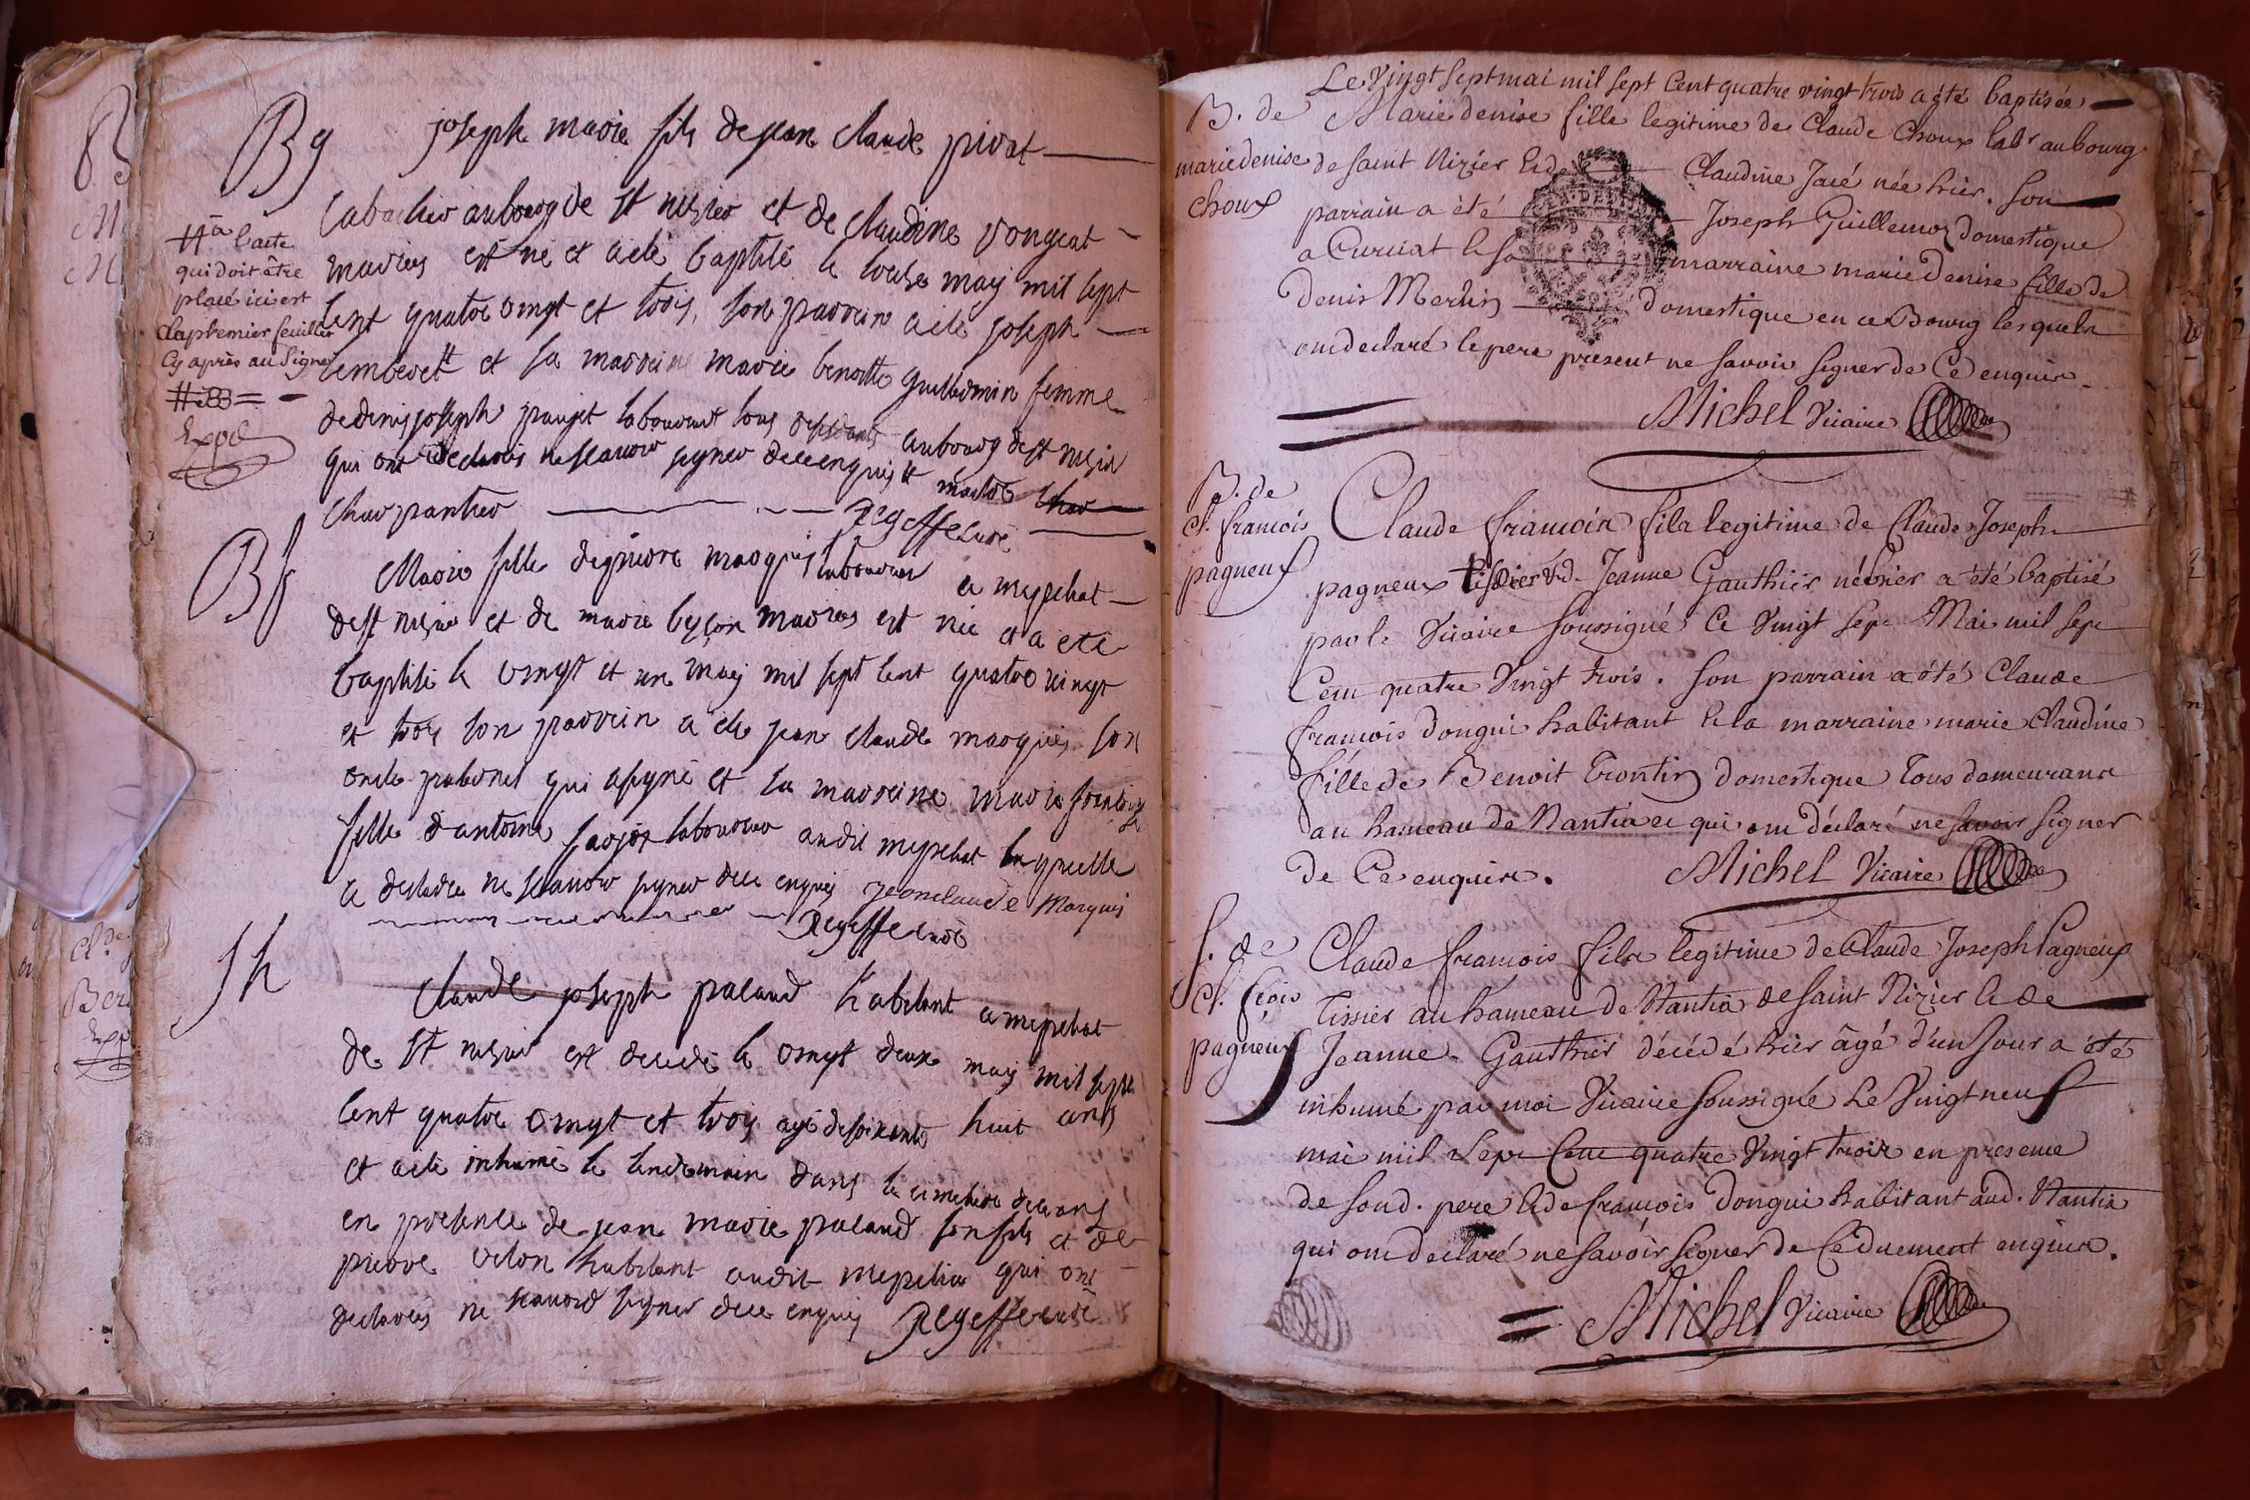 Bg
joseph marie fils de jean claude pivat
cabartier au bourg de st nisier et de claudine vongeat
mariés est né et a eté baptisé le treise may mil sept
cent quatre vingt et trois, son parrein a eté joseph
et sa marreine marie benoitte guillermin femme
de denis joseph pauget laboureur tous au bourg de st nisier
qui ont declarés ne scavoir signer de ce enquis et maitre char
charpantier
Regeffe curé
# a l'acte
qui doit être
placé ici est
la premier feuillet
cy après au Signe
Expé
Bf
Marie fille de pierre marquis laboureur a mepelat
de st nisier et de marie mariés est née et a eté
baptisée le vingt et un may mil sept cent quatre vingt
et trois son parrein a eté jean claude marquis son
oncle paternel qui a signé et sa marreine marie francoise
fille d'antoine laboureur audit mepelat laquelle
a declarée ne scavoir signer de ce enquis jeanclaude Marquis
Regeffe curé
Sh
Claude joseph paland habitant a mepelat
de st nisier est decedé le vingt deux may mil sept
cent quatre vingt et trois agé de soixante huit ans
et a eté inhumé le lendemain dans le cimetiere de ceans
en presence de jean marie paland son fils et de
pierre habitant audit qui ont
declarés ne scavoir signer de ce enquis Regeffe curé
Le Vingt Sept mai mil sept Cent quatre vingt trois a été baptisée
B. de Marie denise fille legitime de Claude Choux labr au bourg
marie denise de saint Nizier & de Claudine Jacé née hier. Son
choux parrain a été Joseph Guillemoz domestique
a Curciat & sa marraine marie Denise fille de
Denis Merlin domestique en ce Bourg lesquels
ont declaré le pere present ne savoir signer de Ce enquis.
Michel Vicaire
B. de
Cl. francois
pagneux
Claude francois fils legitime de Claude Joseph
pagneux tissier & d. Jeanne Gauthier né hier a été baptisé
par le Vicaire soussigné Ce Vingt sept Mai mil sept
Cent quatre Vingt trois. Son parrain a été Claude
francois Dongui habitant & la marraine marie Claudine
fille de Benoit Trontin domestique tous demeurant
au hameau de Nantia et qui ont déclaré ne savoir signer
de Ce enquis. Michel Vicaire
S. de
Cl. fçois
pagneux
Claude francois fils legitime de Claude Joseph Pagneux
Tissier au hameau de Nantia de Saint Nizier & de
Jeanne Gauthier décédé hier âgé d'un Jour a été
inhumé par moi Vicaire Soussigné Le Vingt neuf
mai mil Sept Cent quatre Vingt trois en presence
de son d. pere & de francois Dongui habitant aud. Nantia
qui ont declaré ne savoir signer de Ce duement enquis.
Michel Vicaire